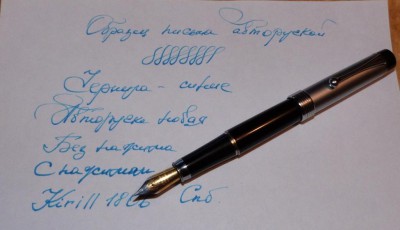 Образец письма авторучкой
Чернила - синие
Авторучка новая
Без нажима
С нажимом
Kirill 18 Спб.